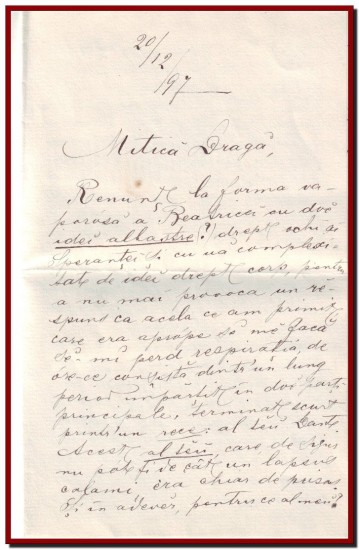 20/12/97
Miticā Dragā,
Renunț la forma va-
porosă a Beatricei cu două
idei albastre (?) drept ochi ai
Speranței și cu uă complexi-
tate de idei drept corp, pentru
a nu mai provoca un res-
puns ca acela ce am primit,
care era aprópe să mĕ facă
să-mi perd respirația, de
óre-ce consistă dintr'un lung
period împărțit în două părți
principale, terminat scurt
printr'un rece: al tĕu Dante
Acest al tĕu, care, de sigur
nu póte fi de cât un lapsus
calami, era chiar de prisos
Și în adevĕr, pentru ce al meu?